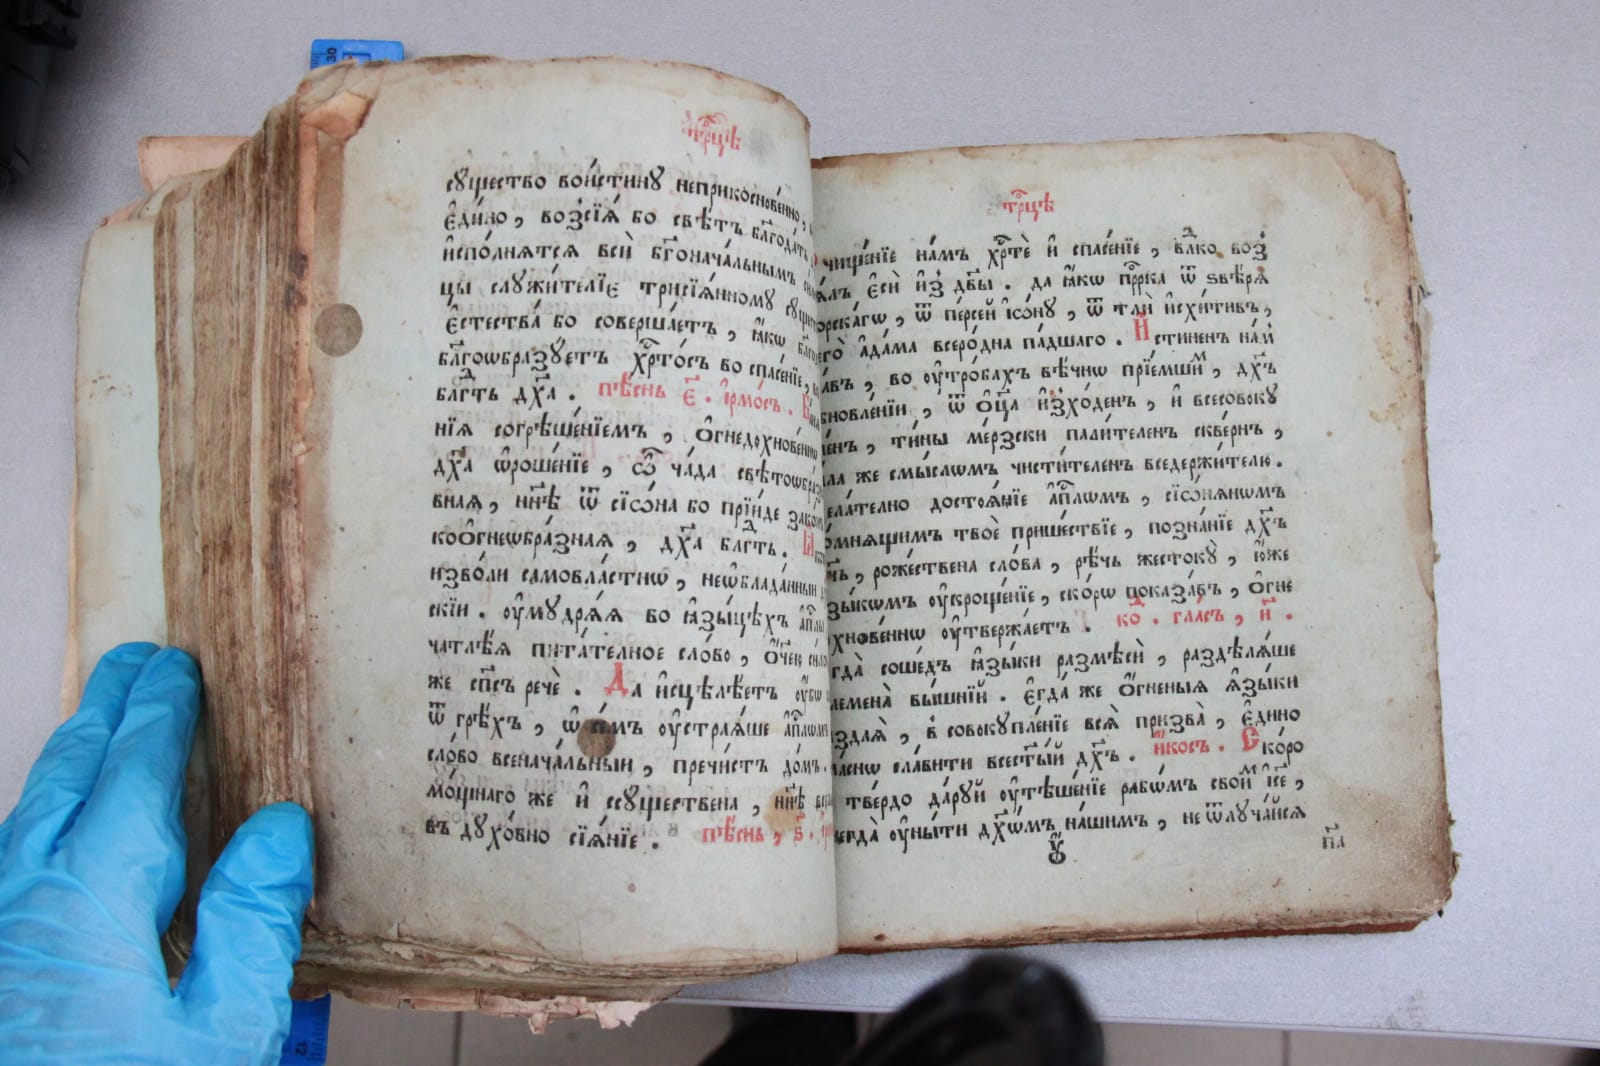 трⷪ҇цѣ
сꙋщество вои́стинꙋ неприкоснове́нно,
є҆ди́но, возсїѧ̀ бо свѣ́тъ бл҃года́ть
и҆спо́лнѧтсѧ всѝ бг҃онача́льнымъ
цы слꙋжи́телїе трисїѧ́нномꙋ
є҆стества́ бо соверша́етъ, ꙗ҆́кѡ
бл҃гоѡбразꙋ́етъ хрⷭ҇то́съ во спасе́нїе,
блгⷣть дх҃а. пѣ́снь є҃. і҆рмо́съ.
нїѧ согрѣше́нїемъ, ѻ҆гнедохнове́ннꙋ
дх҃а ѡ҆роше́нїе, ѽ ча́да свѣтоѡбра́з
внаѧ, нн҃ѣ ѿ сїѡ́на бо прїи́де зако́н
коѻ҆гнеѡбра́знаѧ, дх҃а блгⷣть.
изво́ли самовла́стнѡ, неѡ҆блада́нныи
скїи. ᲂу҆мꙋдрѧ́ѧ во ꙗ҆зы́цѣхъ а҆пⷭ҇лы
чатлѣ́ѧ пита́телное сло́во, ѻ҆́ч҃ею
же сп҃съ речѐ. Да и҆сцѣлѣ́етъ ᲂу҆́бѡ
ѿ грѣ́хъ, ᲂу҆стралѧ́ше а҆пⷭ҇лѡмъ
сло́во всенача́льныи, пречи́стъ до́мъ.
мо́щнаго же и҆ ссꙋ́ществена, нн҃ѣ
въ дꙋхо́вно сїѧ́нїе. пѣ́снь, ѕ҃.
трⷪ҇цѣ
чище́нїе на́мъ хрⷭ҇тѐ и҆ спасе́нїе, влⷣко воз
ѧ́лъ є҆сѝ и҆з̾ дв҃ы. да ꙗ҆́кѡ прⷪ҇рка ѿ ѕвѣ́рѧ
орска́гѡ, ѿ пе́рсеи і҆сѡ́нꙋ, ѿ тлѝ и҆схи́тивъ,
его̀ а҆да́ма всеро́дна па́дшаго. И҆́стиненъ на́м
а́въ, во ᲂу҆тро́бахъ вѣ́чнѡ прїе́мшимъ, дх҃ъ
бновле́нїи, ѿ ѻ҆ц҃а и҆зхо́денъ, и҆ всесовокꙋ
ле́нъ, ти́ны ме́рзски пали́теленъ скве́рнъ,
ла же смы́слѡмъ чисти́теленъ вседержи́телю.
ела́телно достоѧ́нїе а҆пⷭ҇лѡмъ, сїѡ́нѧнѡмъ
омнѧщимъ твоѐ прише́ствїе, позна́нїе дх҃ъ
ч҃ь, роже́ствена сло́ва, рѣ́чь жесто́кꙋ, ю҆́же
зы́кѡмъ ᲂу҆кроще́нїе, ско́рѡ показа́въ, ѻ҆гне
хнове́ннѡ ᲂу҆твержа́етъ. коⷣ. гла́съ, и҃.
гда̀ соше́дъ ꙗ҆зы́ки размѣсѝ, раздѣлѧ́ше
лемена̀ вы́шнїй. є҆гда́ же ѻ҆́гненыѧ ꙗ҆зы́ки
здаѧ́, в̾ совокꙋпле́нїе всѧ̀ призва̀, є҆ди́но
ла́снѡ сла́вити всест҃ы́й дх҃ъ. и҆́косъ. Ско́ро
тве́рдо да́рꙋй ᲂу҆тѣше́нїе рабѡ́мъ свои́мъ і҆с҃е,
егда̀ ᲂу҆ны́ти дх҃ѡ́мъ на́шимъ, не ѿлꙋча́йсѧ
п҃а